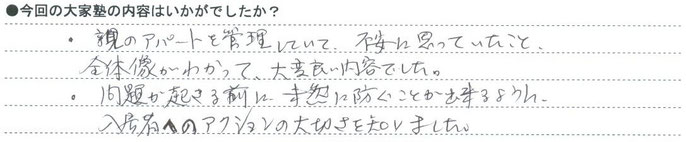 ●今回の大家塾の内容はいかがでしたか？
・親のアパートを管理していて、不安に思っていたこと、
全体像がわかって、大変良い内容でした。
・問題が起きる前に、未然に防ぐことが出来るように、
入居者へのアクションの大切さを知りました。